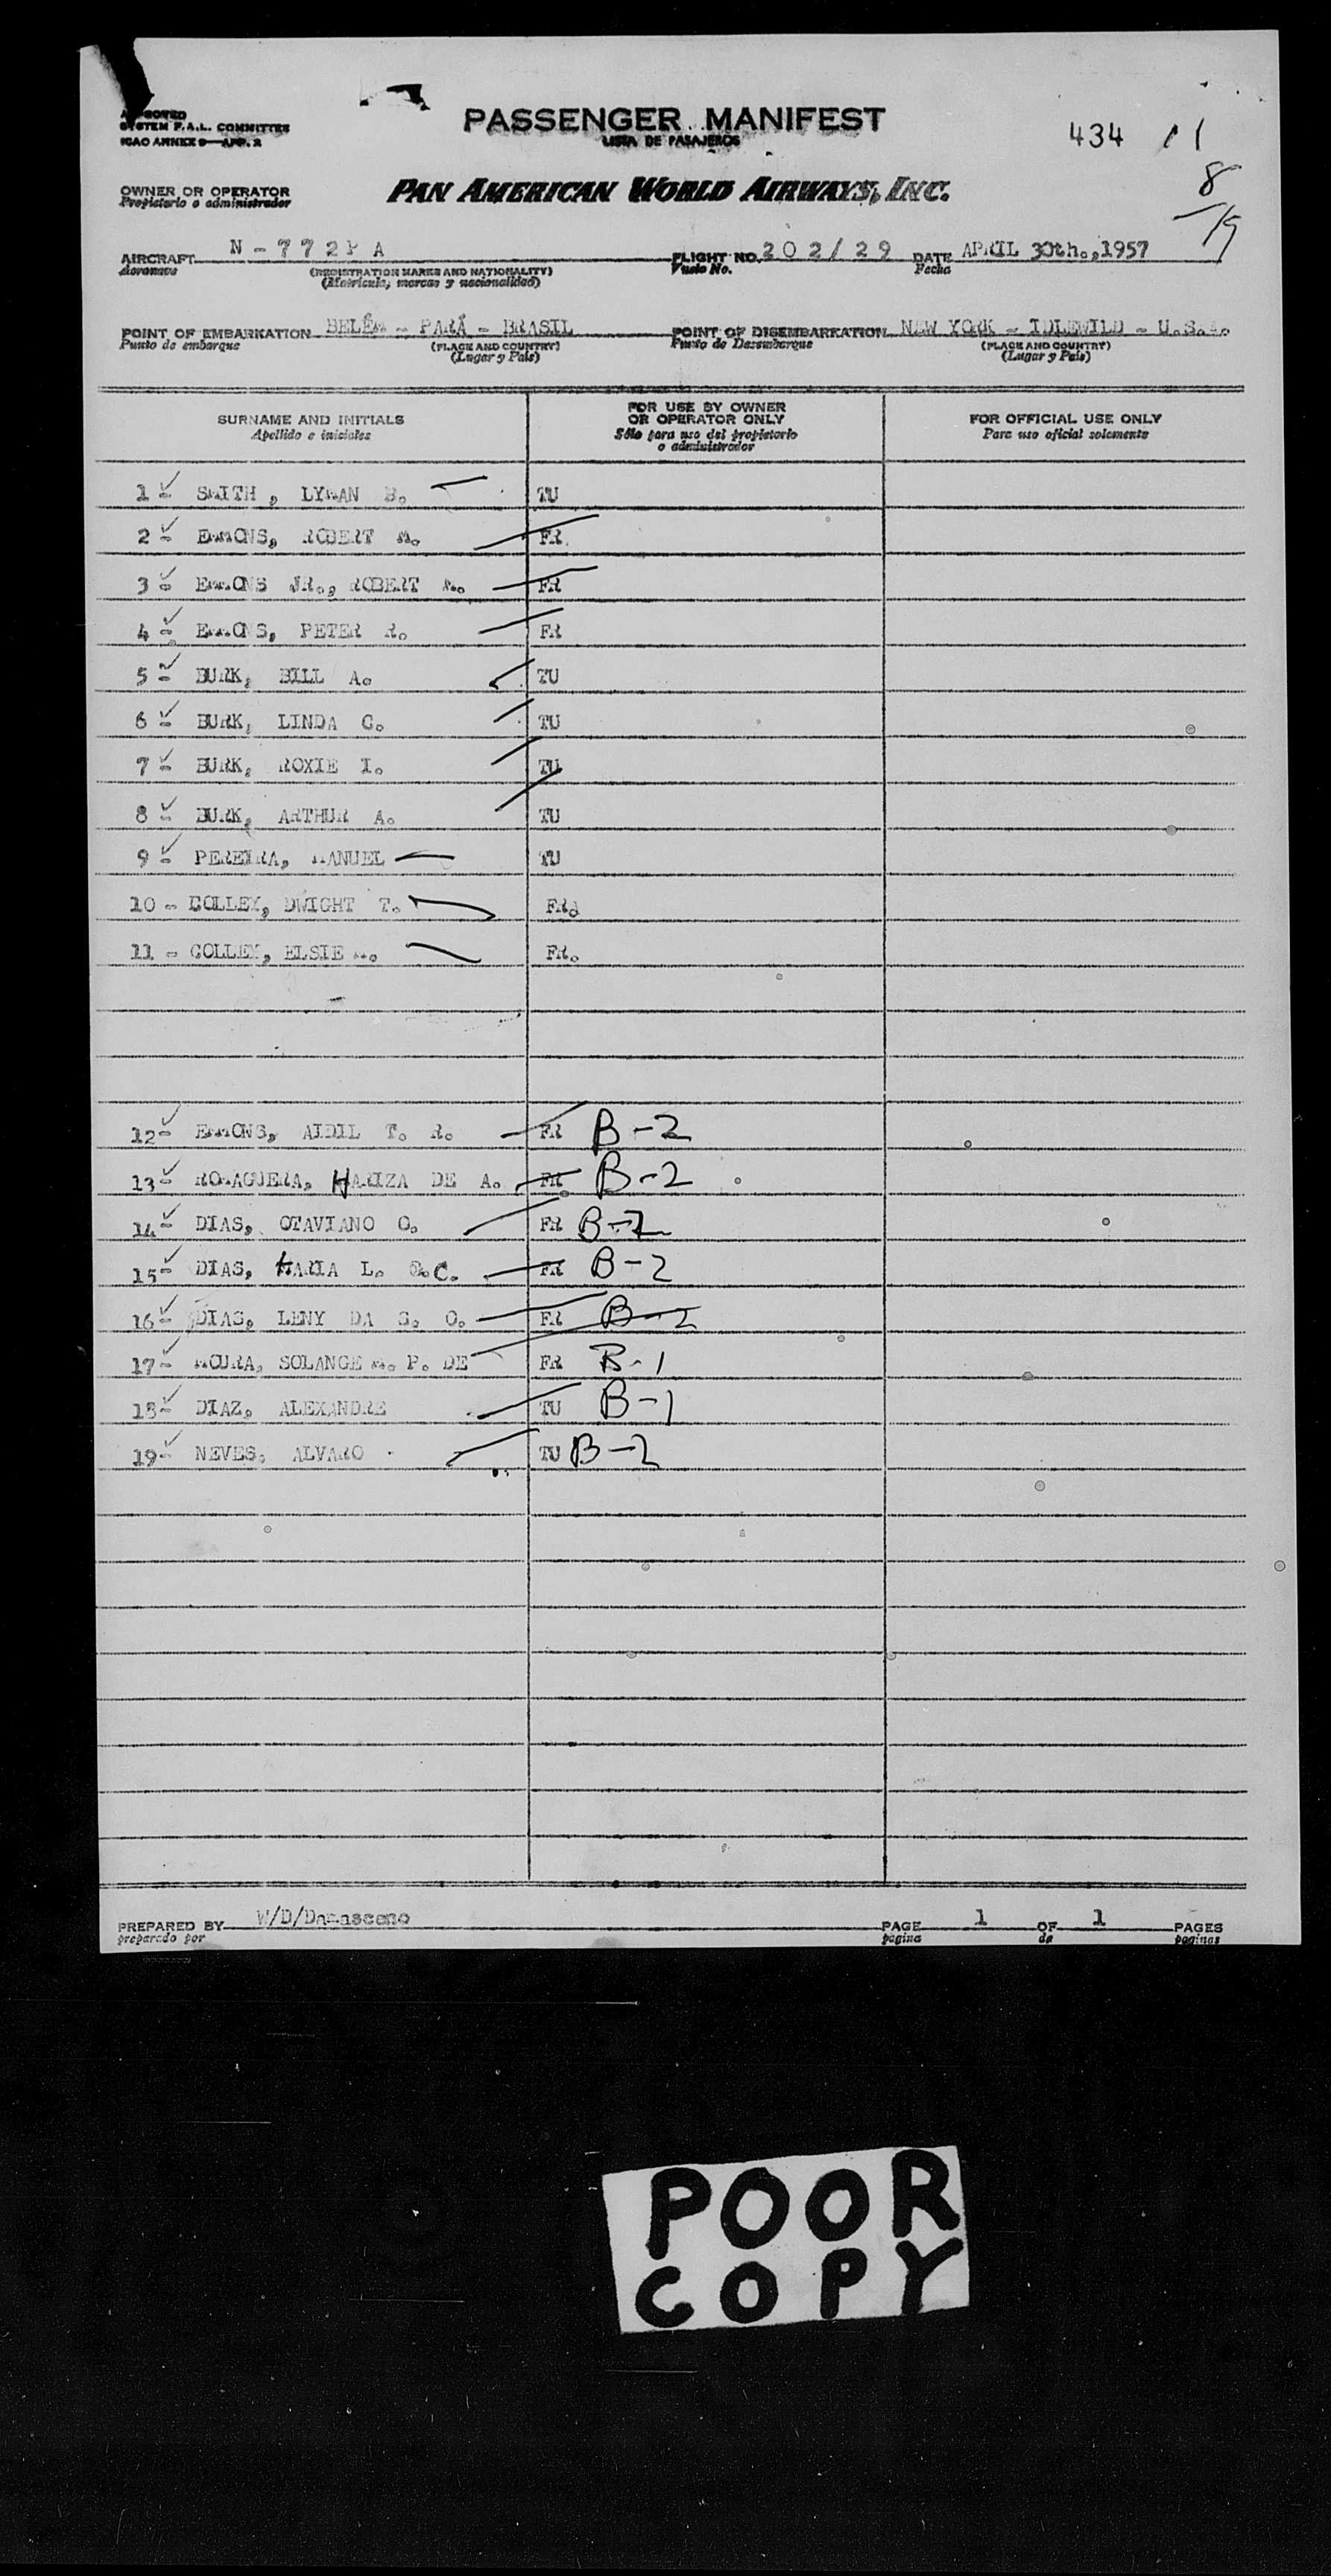 APPROVED
SYSTEM F.A.L. COMMITTEE
ICAO ANNEX 9—APP. 2
PASSENGER MANIFEST
LISTA DE PASAJEROS
434 11
8
/19
OWNER OR OPERATOR
Propietario o administrador
PAN AMERICAN WORLD AIRWAYS, INC.
AIRCRAFT N - 7 7 2 P A FLIGHT NO. 2 0 2 / 2 9 DATE APRIL 30th.,1957
Aeronave (REGISTRATION MARKS AND NATIONALITY) Vuelo No. Fecha
(Matricula, marcas y nacionalidad)
POINT OF EMBARKATION BELÉM - PARÁ - BRASIL POINT OF DISEMBARKATION NEW YORK - IDLEWILD - U.S.A.
Punto de embarque (PLACE AND COUNTRY) Punto de Desembarque (PLACE AND COUNTRY)
(Lugar y Pais) (Lugar y Pais)
SURNAME AND INITIALS
Apellido e iniciales
FOR USE BY OWNER
OR OPERATOR ONLY
Sólo para uso del propietario
o administrador
FOR OFFICIAL USE ONLY
Para uso oficial solamente
1 - SMITH , LYMAN B. TU
2 - EMMONS, ROBERT M. FR.
3 - EMMONS JR., ROBERT M. FR
4 - EMMONS, PETER R. FR
5 - BURK, BILL A. TU
6 - BURK, LINDA C. TU
7 - BURK, ROXIE I. TU
8 - BURK, ARTHUR A. TU
9 - PEREIRA, MANUEL TU
10 - COLLEY, DWIGHT T. FR.
11 - COLLEY, ELSIE M. FR.
12- EMMONS, AIDIL T. R. FR B-2
13- ROMAGUERA, HARIZA DE A. FR B-2
14- DIAS, OTAVIANO O. FR B-2
15- DIAS, MARIA L. C. FR B-2
16- DIAS, LENY DA S. O. FR B-2
17- MOURA, SOLANGE M. P. DE FR B-1
18- DIAZ, ALEXANDRE TU B-1
19- NEVES, ALVARO TU B-2
PREPARED BY W/D/Damasceno PAGE 1 OF 1 PAGES
preparado por pagina de paginas
POOR
COPY